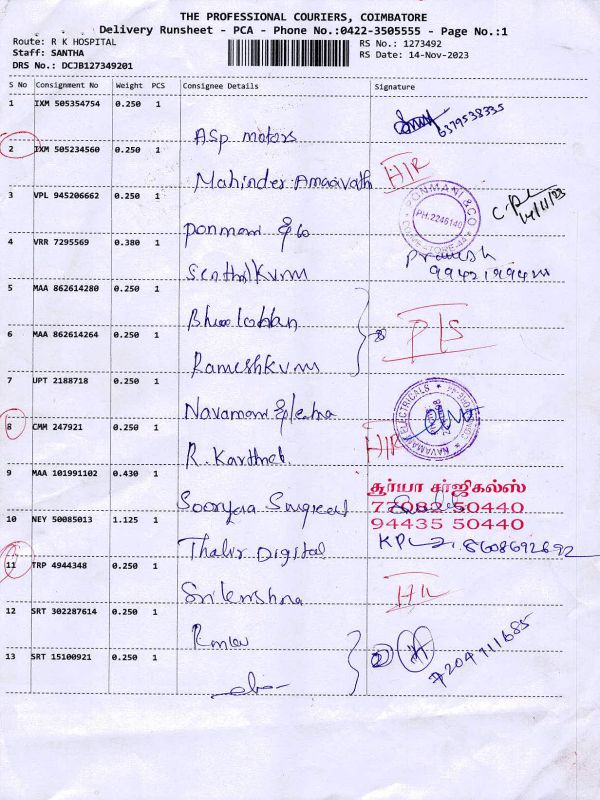 THE PROFESSIONAL COURIERS, COIMBATORE
Delivery Runsheet - PCA - Phone No.:0422-3505555 - Page No.:1
Route: R K HOSPITAL
Staff: SANTHA
DRS No.: DCJB127349201
RS No.: 1273492
RS Date: 14-Nov-2023
S No Consignment No Weight PCS Consignee Details Signature
1 IXM 505354754 0.250 1 ASp motors 6379538335
2 IXM 505234560 0.250 1 Mahinder Amaravath
3 VPL 945206662 0.250 1 ponmani & co PONMANI & CO PH:2246140 14/11/23
4 VRR 7295569 0.380 1 Senthilkum
5 MAA 862614280 0.250 1
6 MAA 862614264 0.250 1 Rameshkum P/S
7 UPT 2188718 0.250 1 NAVAMANI ELECTRICALS
8 CMM 247921 0.250 1 R. Karthik
9 MAA 101991102 0.430 1 சூர்யா சர்ஜிகல்ஸ்
77082 50440
94435 50440
10 NEY 50085013 1.125 1 Thalir Digital 8608692692
11 TRP 4944348 0.250 1 Srikrishna
12 SRT 302287614 0.250 1
13 SRT 15100921 0.250 1 7204711685